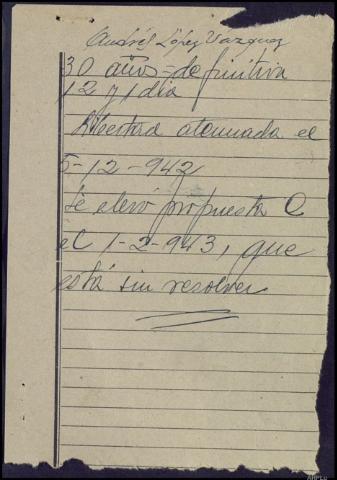 Andrés López Vazquez
30 años = definitiva
12 y 1 día
libertad atenuada el
5-12-942
Se elevó propuesta C
el 1-2-943, que
está sin resolver